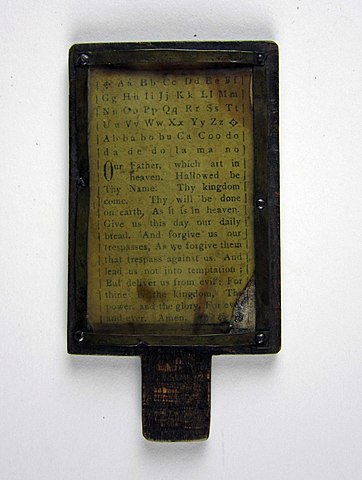 ✤ Aa Bb Cc Dd Ee Ff
Gg Hh Ii Jj Kk Ll Mm
Nn Oo Pp Qq Rr Ss Tt
Uu Vv Ww Xx Yy Zz ✤
Ab ba bo bu Ca Coo do
da de do la ma no
Our Father, which art in
heaven, Hallowed be
Thy Name: Thy kingdom
come. Thy will be done
on earth, As it is in heaven.
Give us this day our daily
bread. And forgive us our
trespasses, As we forgive them
that trespass against us. And
lead us not into temptation
But deliver us from evil: For
thine the kingdom, The
power, and the glory, For ever
and ever. Amen.